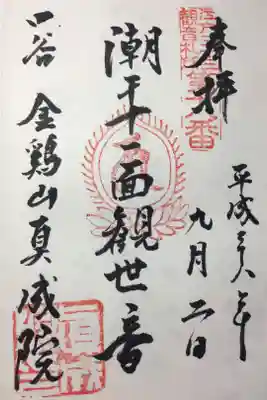 奉拝
平成二八年
九月二日
潮干十一面観世音
四谷 金鶏山真成院
観音札所
第十八番